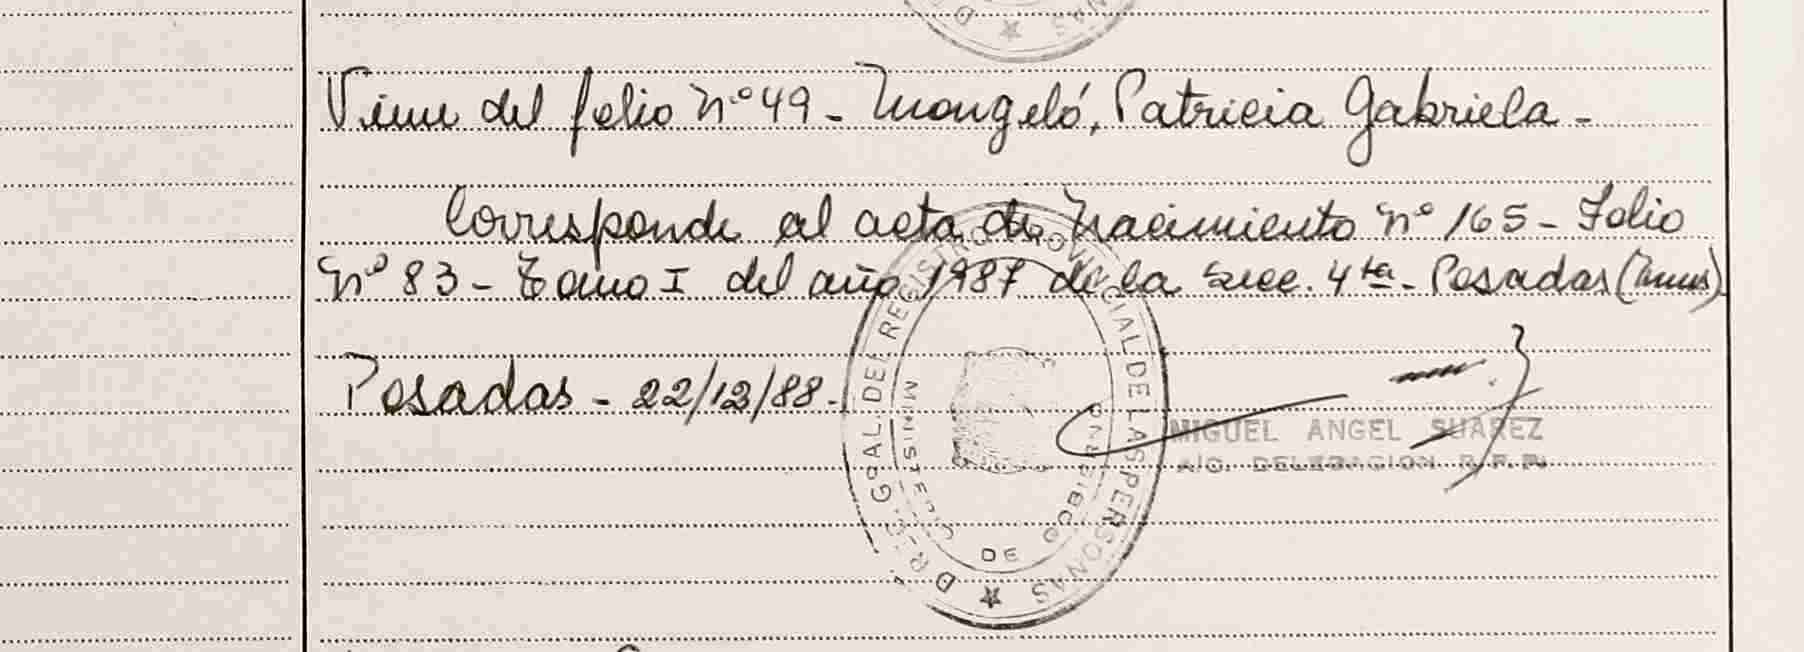 Viene del folio Nº 49 - Mongeló, Patricia Gabriela -
Corresponde al acta de Nacimiento Nº 165 - Folio
Nº 83 - Tomo I del año 1987 de la Secc. 4ta - Posadas (Mnes)
Posadas - 22/12/88 -
D.R.C. Gral. DEL REGISTRO PROVINCIAL DE LAS PERSONAS
DE GOBIERNO
MIGUEL ANGEL SUAREZ
A/C. DELEGACION R.P.P.